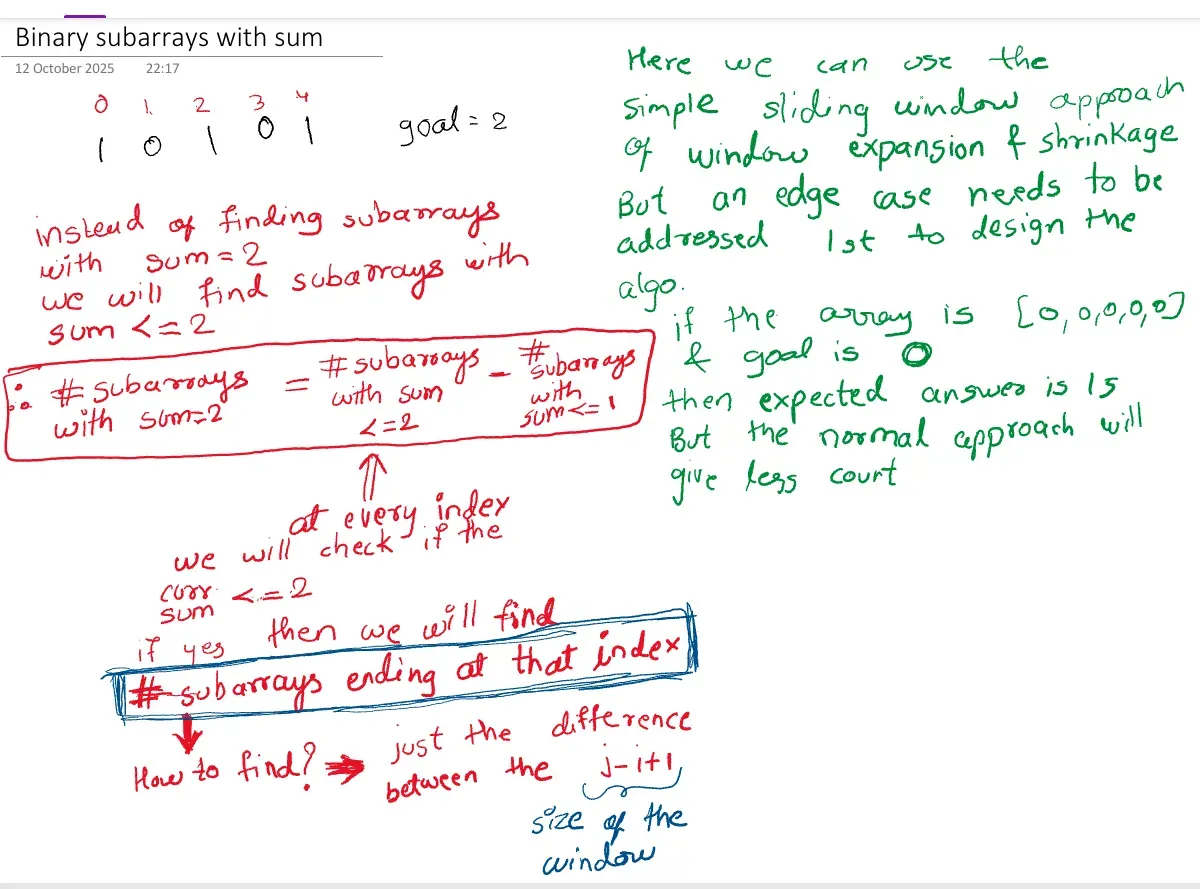 Binary subarrays with sum
12 October 2025 22:17
0 1 2 3 4
1 0 1 0 1 goal = 2
instead of finding subarrays
with sum = 2
we will find subarrays with
sum <= 2
∴ # subarrays with sum=2 = # subarrays with sum <=2 - # subarrays with sum<=1
at every index
we will check if the
curr sum <= 2
if yes then we will find
# subarrays ending at that index
How to find? → just the difference
between the j-i+1
size of the
window
Here we can use the
simple sliding window approach
of window expansion & shrinkage
But an edge case needs to be
addressed 1st to design the
algo.
if the array is [0,0,0,0,0]
& goal is 0
then expected answer is 15
But the normal approach will
give less count